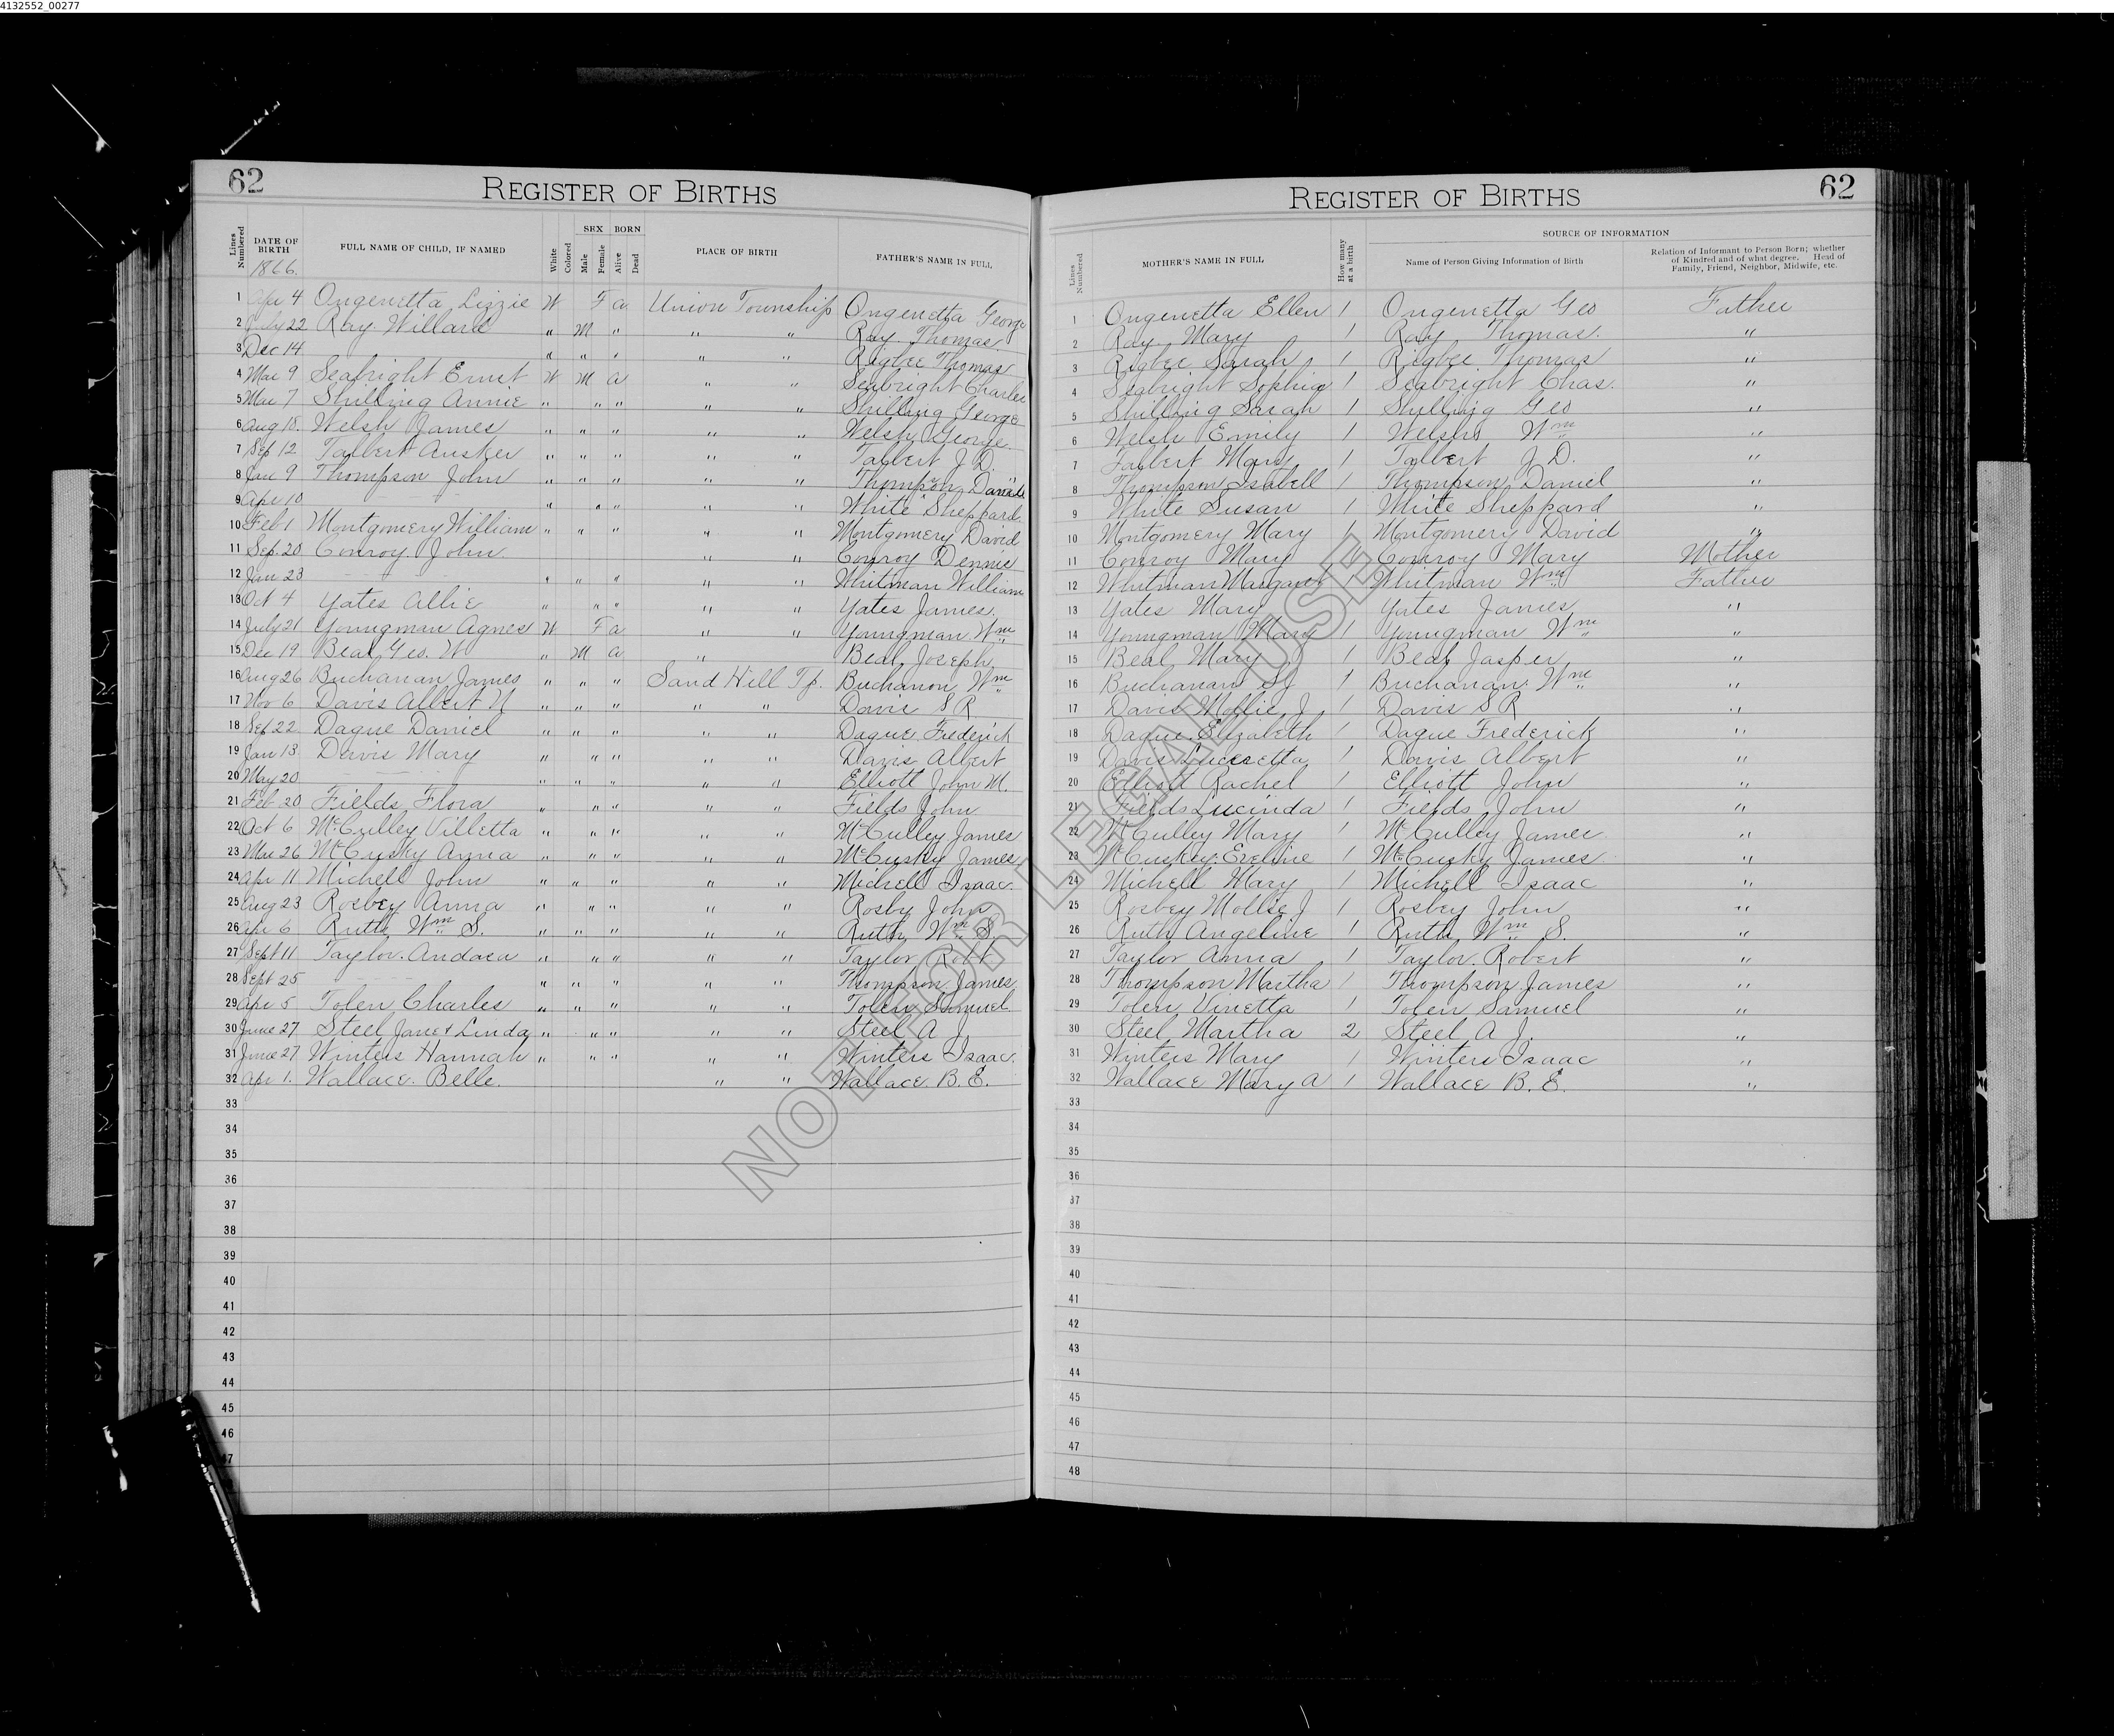 4132552_00277
62 REGISTER OF BIRTHS
Lines Numbered DATE OF BIRTH FULL NAME OF CHILD, IF NAMED White Colored SEX Male Female BORN Alive Dead PLACE OF BIRTH FATHER'S NAME IN FULL
1866.
1 Apr 4 Ongenetta, Lizzie W F a Union Township Ongenetta George
2 July 22 Ray Willard " M " " " Ray Thomas
3 Dec 14 " " " " " Rigbee Thomas
4 Mar 9 Seabright Ernst W M a " " Seabright Charles
5 Mar 7 Shilling Annie " " " " " Shilling George
6 Aug 18. Welsh James " " " " " Welsh George
7 Sep 12 Talbert Ausker " " " " " Talbert J D.
8 Jan 9 Thompson John " " " " " Thompson Daniel
9 Apr 10 " " " " " White Sheppard
10 Feb 1 Montgomery William " " " " " Montgomery David
11 Sep. 20 Conroy John " " Conroy Dennis
12 Jan 23 " " " " " Whitman William
13 Oct 4 Yates Allie " " " " " Yates James.
14 July 21 Youngman Agnes W F a " " Youngman Wm
15 Dec 19 Beal, Geo. W " M a " Beal, Joseph
16 Aug 26 Buchanan James " " " Sand Hill Tp. Buchanan Wm
17 Nov 6 Davis Albert N " " " " " Davis S R
18 Sep 22. Dague Daniel " " " " " Dague Frederick
19 Jan 13 Davis Mary " " " " " Davis Albert
20 May 20 " " " " " Elliott John M.
21 Feb 20 Fields, Flora " " " " " Fields John
22 Oct 6 McCulley Villetta " " " " " McCulley James
23 Mar 26 McCusky Anna " " " " " McCusky James
24 Apr 11 Michell John " " " " " Michell Isaac
25 Aug 23 Rosbey Anna " " " " " Rosby John
26 Apr 6 Ruth Wm S. " " " " " Ruth Wm S.
27 Sept 11 Taylor. Andaca " " " " " Taylor Robt
28 Sept 25 " " " " " Thompson James
29 Apr 5 Tolen Charles " " " " " Tolen Samuel
30 June 27 Steel Jane & Linda " " " " " Steel A J
31 June 27 Winters Hannah " " " " " Winters Isaac
32 Apr 1. Wallace. Belle. " " Wallace. B. E.
33
34
35
36
37
38
39
40
41
42
43
44
45
46
47
REGISTER OF BIRTHS 62
Lines Numbered MOTHER'S NAME IN FULL How many at a birth SOURCE OF INFORMATION
Name of Person Giving Information of Birth Relation of Informant to Person Born; whether of Kindred and of what degree. Head of Family, Friend, Neighbor, Midwife, etc.
1 Ongenetta Ellen 1 Ongenetta Geo Father
2 Ray Mary 1 Ray Thomas. "
3 Rigbee Sarah 1 Rigbee Thomas "
4 Seabright Sophia 1 Seabright Chas. "
5 Shilling Sarah 1 Shilling Geo "
6 Welsh Emily 1 Welsh Wm "
7 Talbert Mary 1 Talbert J D. "
8 Thompson Isabell 1 Thompson Daniel "
9 White Susan 1 White Sheppard "
10 Montgomery Mary 1 Montgomery David "
11 Conroy Mary 1 Conroy Mary Mother
12 Whitman Margaret 1 Whitman Wm Father
13 Yates Mary 1 Yates James "
14 Youngman Mary 1 Youngman Wm "
15 Beal Mary 1 Beal, Jasper "
16 Buchanan S J 1 Buchanan. Wm "
17 Davis Mollie J 1 Davis S R "
18 Dague. Elizabeth 1 Dague Frederick "
19 Davis 1 Davis Albert "
20 Elliott Rachel 1 Elliott John "
21 Fields Lucinda 1 Fields John "
22 McCulley Mary 1 McCulley James "
23 McCuskey Eveline 1 McCusky James "
24 Michell Mary 1 Michell Isaac "
25 Rosbey Mollie J 1 Rosbey John "
26 Ruth Angeline 1 Ruth Wm S. "
27 Taylor Anna 1 Taylor. Robert "
28 Thompson Martha 1 Thompson James "
29 Tolen Vinetta 1 Tolen Samuel "
30 Steel Martha 2 Steel A J. "
31 Winters Mary 1 Winters Isaac "
32 Wallace Mary A 1 Wallace B. E. "
33
34
35
36
37
38
39
40
41
42
43
44
45
46
47
48
NOT FOR LEGAL USE